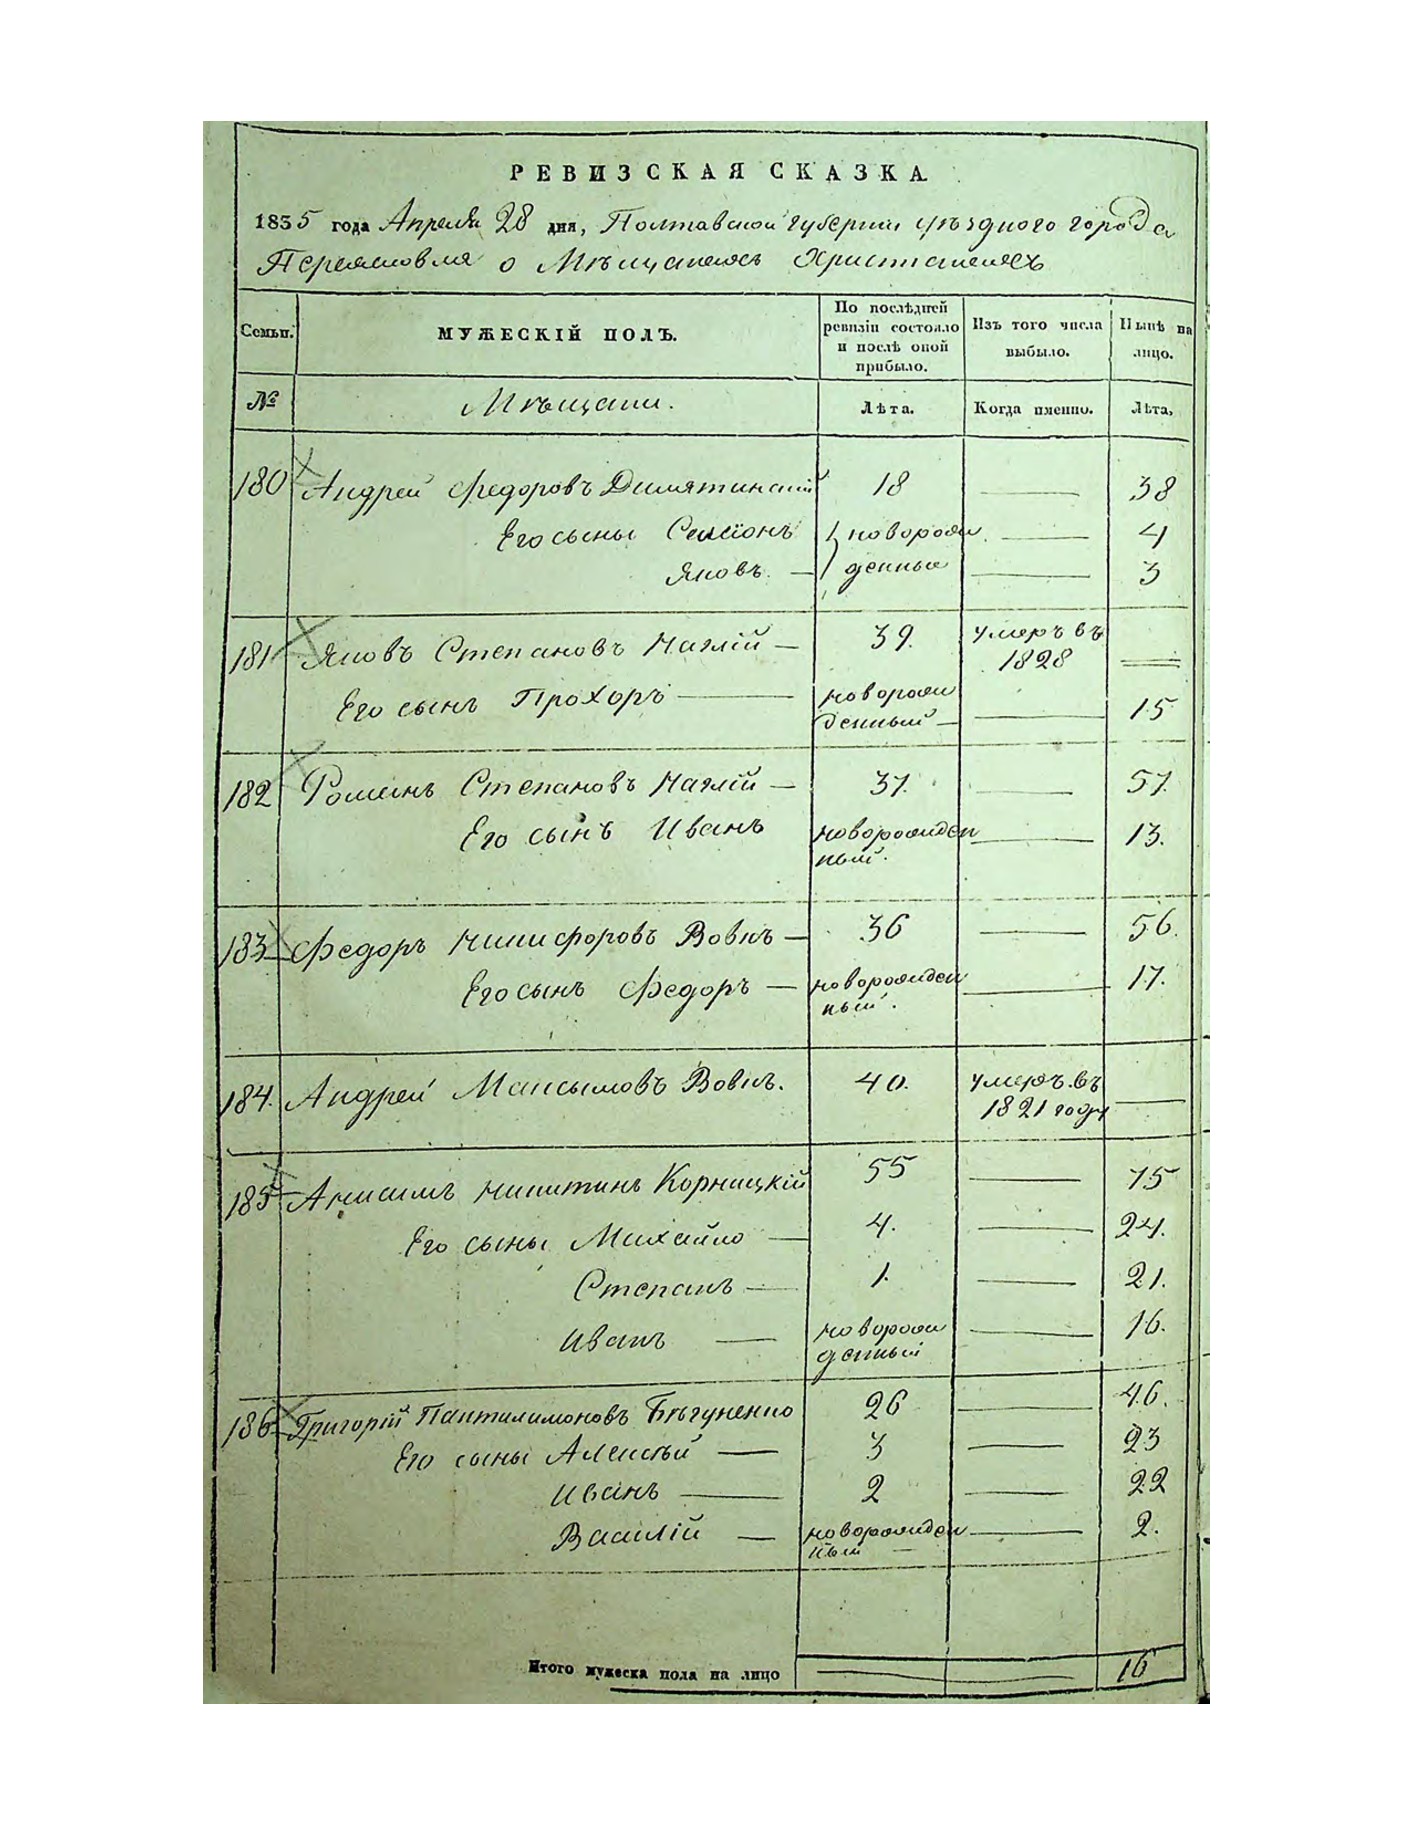 РЕВИЗСКАЯ СКАЗКА
1835 года Апреля 28 дня, Полтавской губернии уѣздного города
Переяславля о Мѣщанехъ Христианехъ
Семьи. МУЖЕСКІЙ ПОЛЪ. По послѣдней ревизіи состояло и послѣ оной прибыло. Изъ того числа выбыло. Нынѣ на лицо.
№ Мѣщани. Лѣта. Когда именно. Лѣта,
180 Андрей Федоровъ 18 38
Его сыны Семіонъ новорож 4
Яковъ. денные 3
181 Яковъ Степановъ 39. умеръ въ
1828
Его сынъ Прохоръ новорож
денный 15
182 Романъ Степановъ 37. 57.
Его сынъ Иванъ новорожден 13.
ный.
183 Федоръ Никифоровъ Вовкъ 36 56.
Его сынъ Федоръ новорожден 17.
ный.
184. Андрей Максымовъ Вовкъ. 40. умеръ въ
1821 году
185 Анисимъ Никитинъ Корницкій 55 75
Его сыны Михайло 4. 24.
Степанъ 1. 21.
Иванъ новорож 16.
денный
186 Григорій Пантилимоновъ Бѣгуненко 26 46.
Его сыны Алексѣй 3 23
Иванъ 2 22
Василій новорожден 2.
ный
Итого мужеска пола на лицо 16